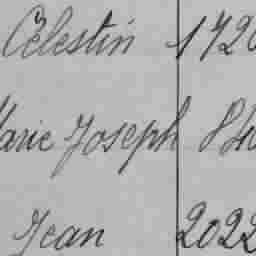 Célestin 1720
Marie Joseph 840
Jean 2022